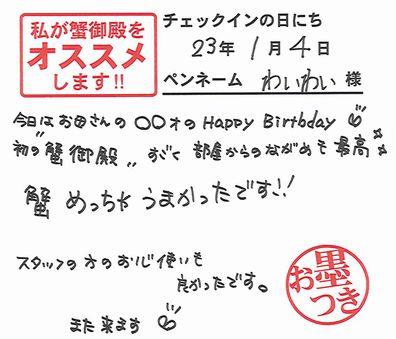 私が蟹御殿を
オススメ
します!!
チェックインの日にち
23年 1月 4日
ペンネーム わいわい 様
今日はお母さんの〇〇才のHappy Birthday
初の"蟹御殿" すごく 部屋からのながめも 最高
蟹 めっちゃ うまかったです!!
スタッフの方のお心使いも
良かったです。
また来ます
お墨つき